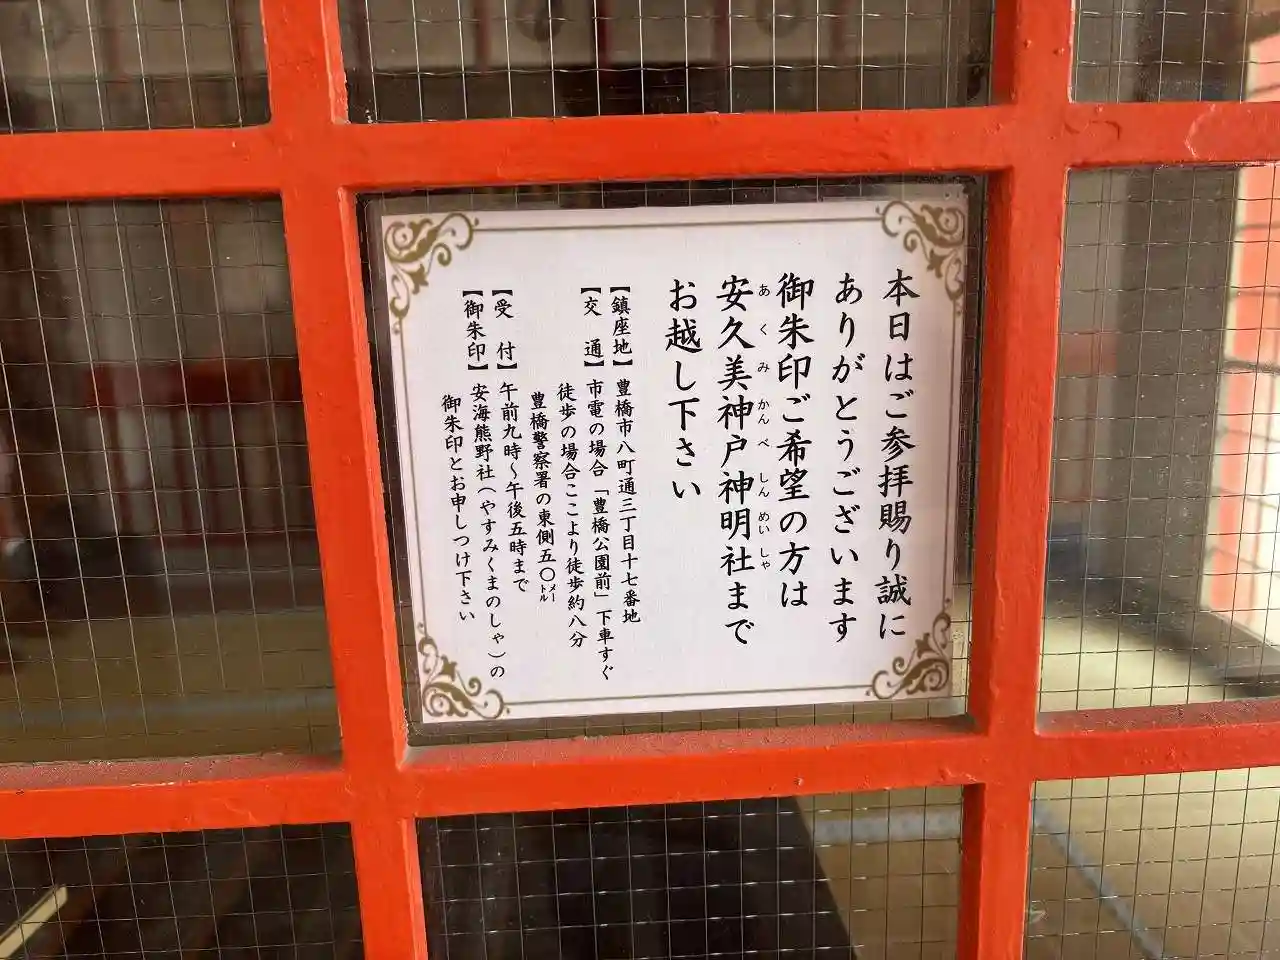 本日はご参拝賜り誠に
ありがとうございます
御朱印ご希望の方は
安久美神戸神明社まで
あくみかんべしんめいしゃ
お越し下さい
【鎮座地】豊橋市八町通三丁目十七番地
【交通】市電の場合「豊橋公園前」下車すぐ
徒歩の場合ここより徒歩約八分
豊橋警察署の東側五〇メートル
【受付】午前九時～午後五時まで
【御朱印】安海熊野社(やすみくまのしゃ)の
御朱印とお申しつけ下さい